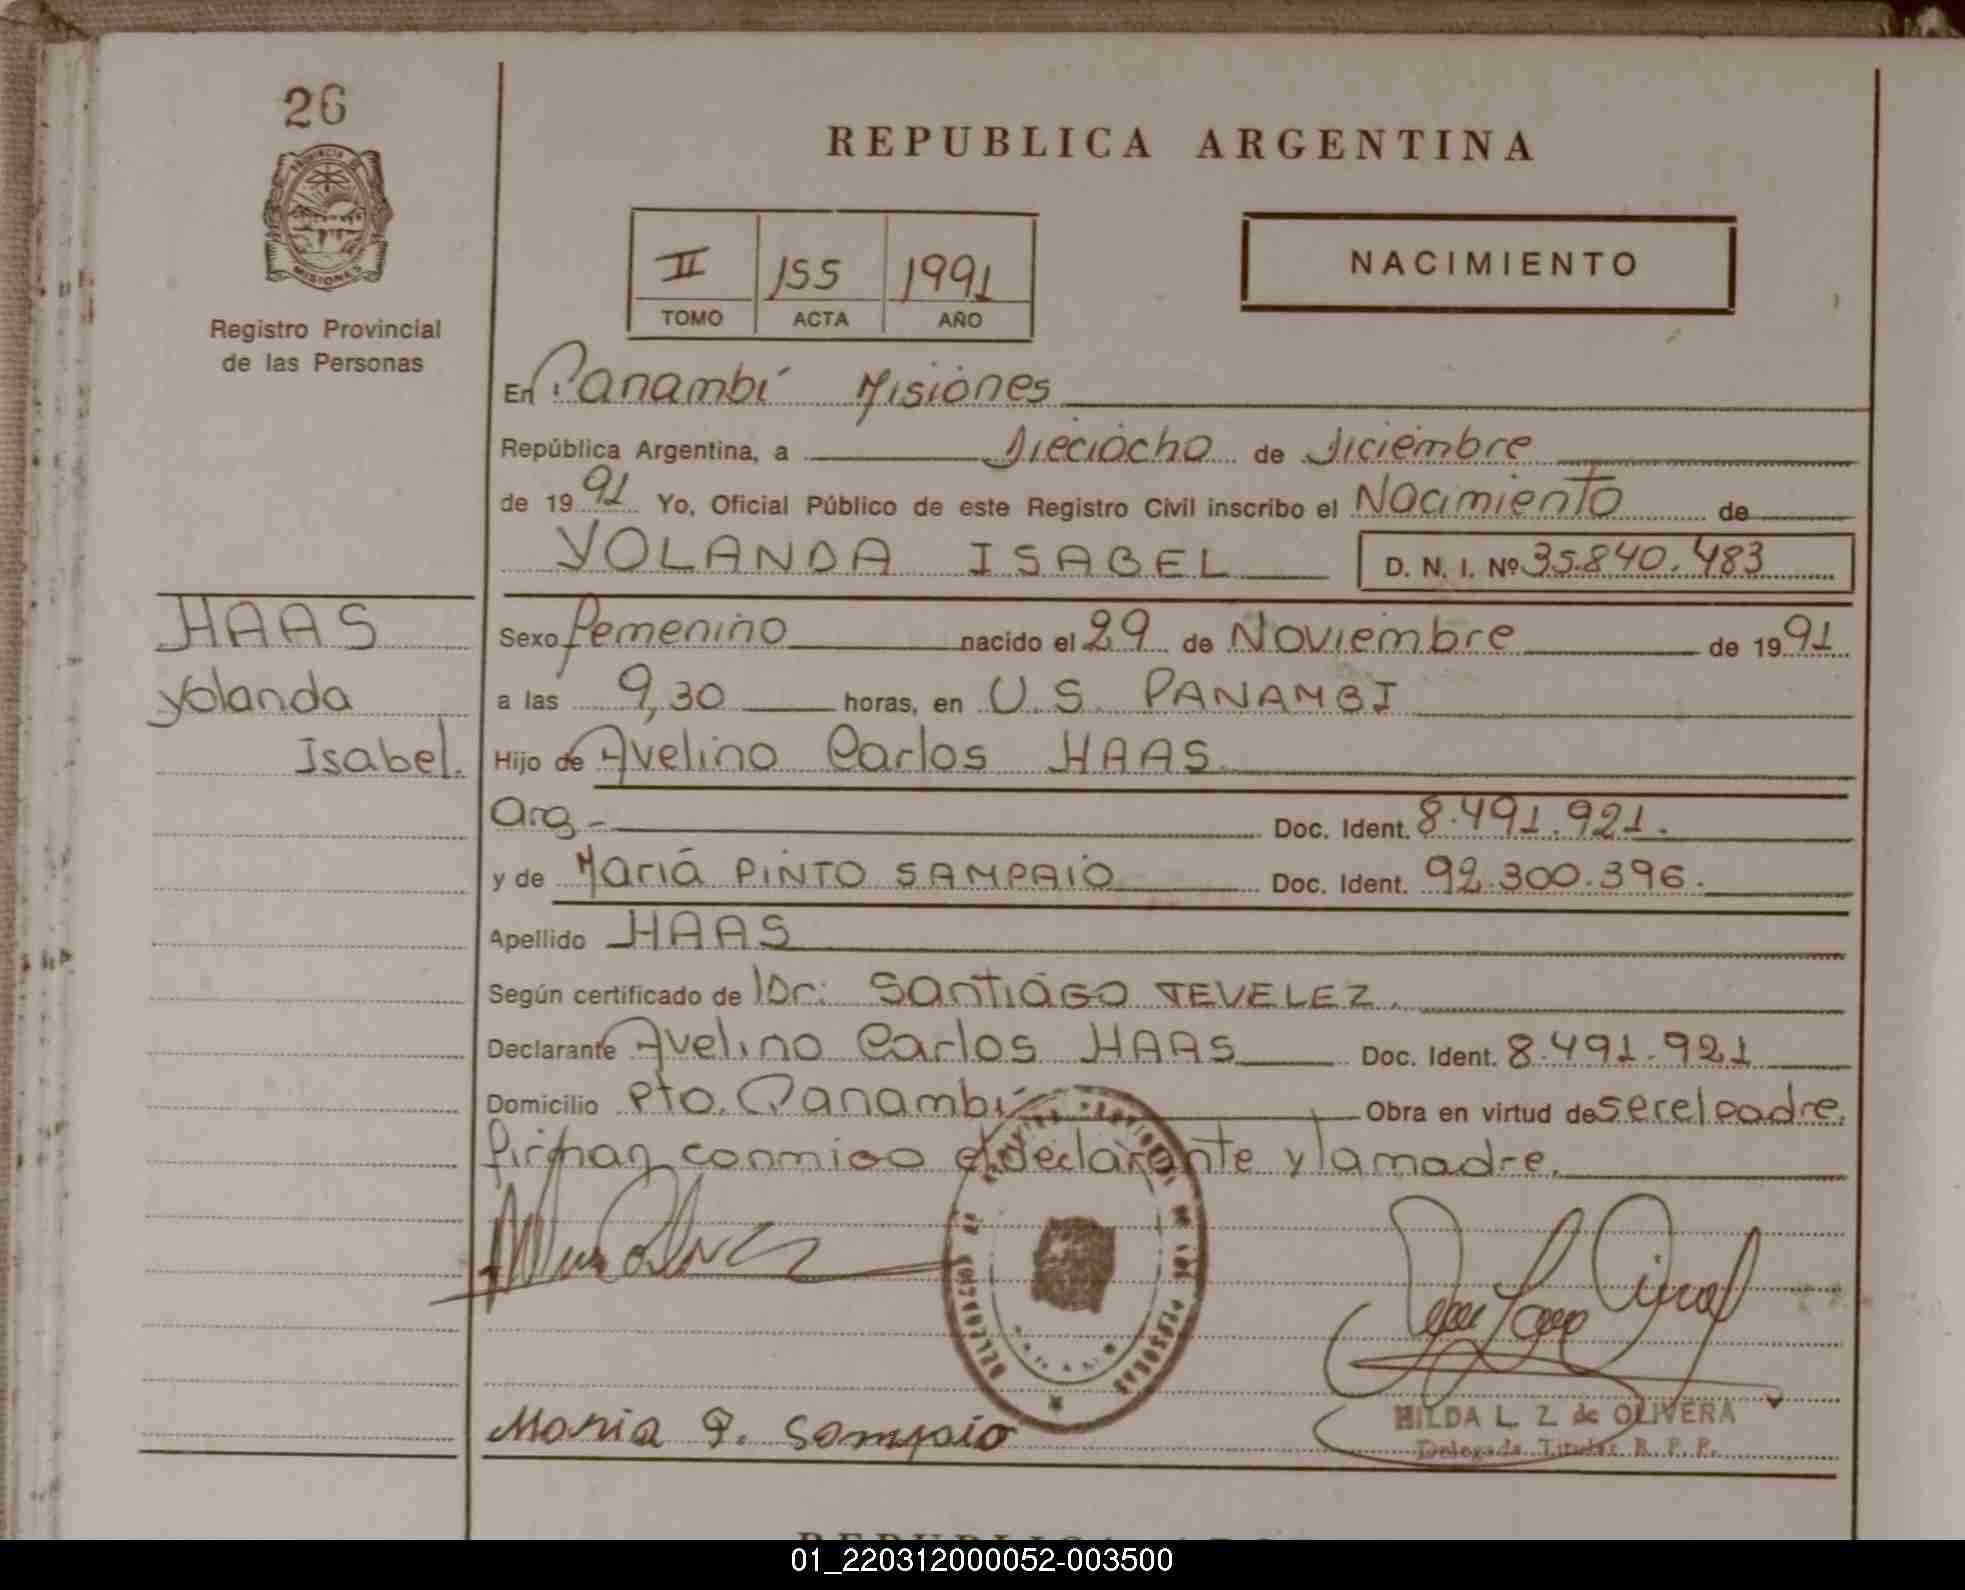 26
PROVINCIA DE
MISIONES
Registro Provincial
de las Personas
REPUBLICA ARGENTINA
II 155 1991
TOMO ACTA AÑO
NACIMIENTO
En Panambí Misiones
República Argentina, a Dieciocho de Diciembre
de 1991 Yo, Oficial Público de este Registro Civil inscribo el Nacimiento de
YOLANDA ISABEL D. N. I. Nº 35.840.483
HAAS
Yolanda
Isabel.
Sexo femenino nacido el 29 de Noviembre de 1991
a las 9,30 horas, en U.S. PANAMBI
Hijo de Avelino Carlos HAAS
Arg- Doc. Ident. 8.491.921.
y de María PINTO SAMPAIO Doc. Ident. 92.300.396.
Apellido HAAS
Según certificado de Dr: SANTIAGO TEVELEZ.
Declarante Avelino Carlos HAAS Doc. Ident. 8.491.921
Domicilio Pto. Panambí Obra en virtud de ser el padre.
firman conmigo el declarante y la madre.
Maria P. Sampaio
HILDA L. Z. de OLIVERA
Delegada Titular R. P. P.
01_220312000052-003500